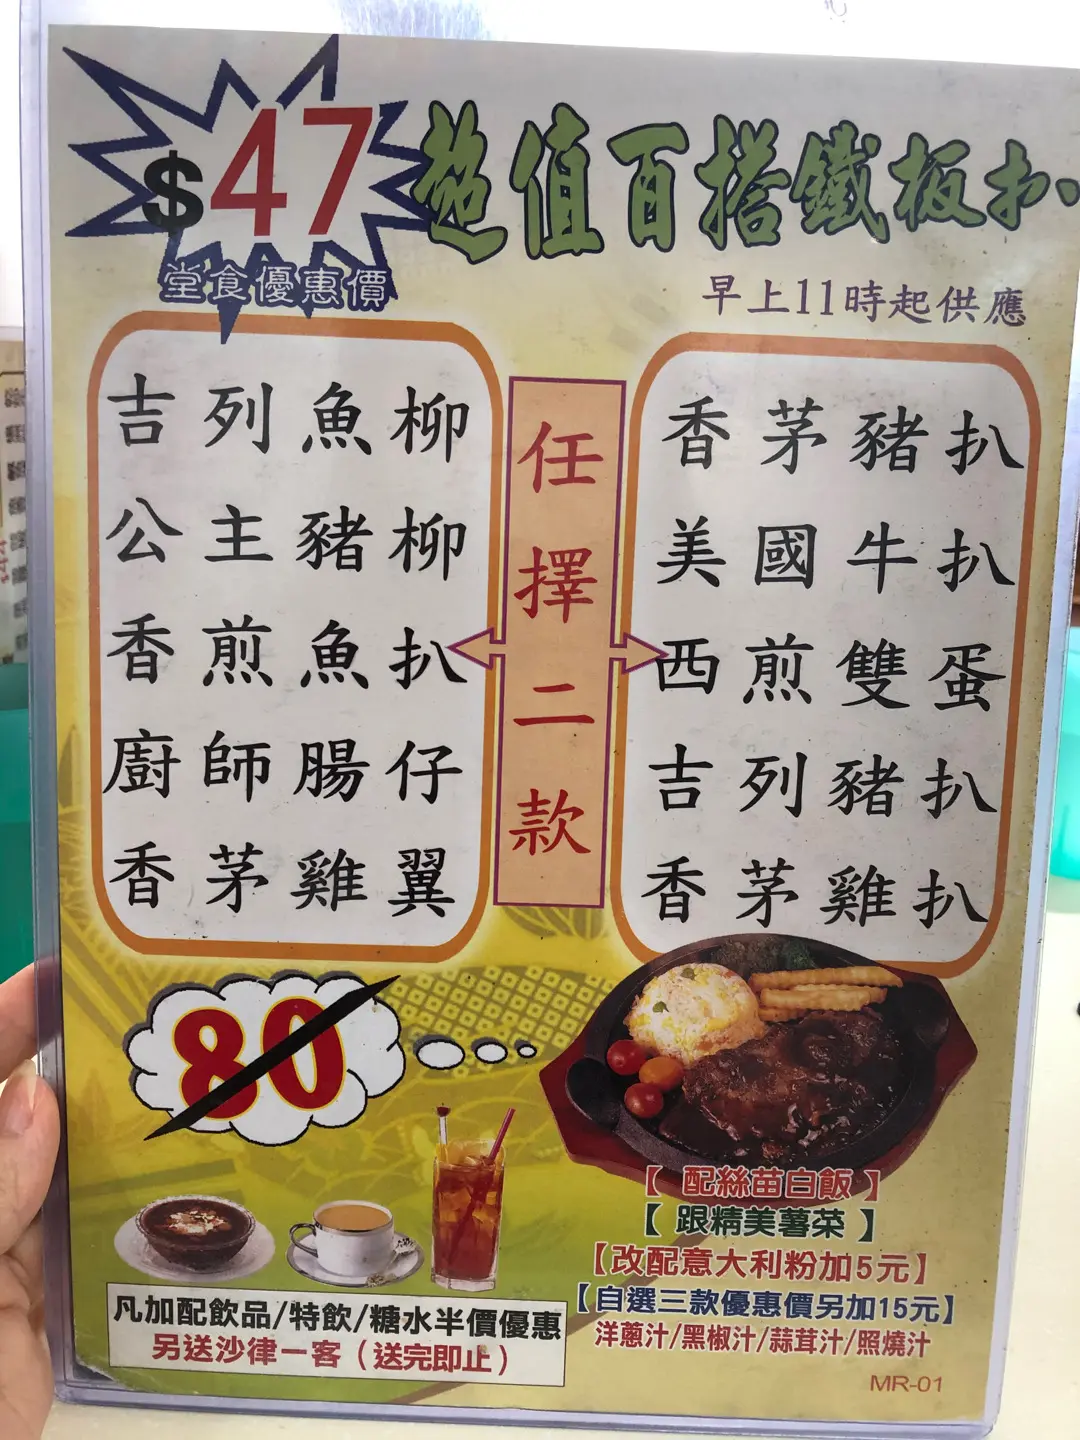 $47
堂食優惠價
超值百搭鐵板扒
早上11時起供應
吉列魚柳
公主豬柳
香煎魚扒
廚師腸仔
香茅雞翼
任擇二款
香茅豬扒
美國牛扒
西煎雙蛋
吉列豬扒
香茅雞扒
80
【配絲苗白飯】
【跟精美薯菜】
【改配意大利粉加5元】
【自選三款優惠價另加15元】
洋蔥汁/黑椒汁/蒜茸汁/照燒汁
凡加配飲品/特飲/糖水半價優惠
另送沙律一客(送完即止)
MR-01